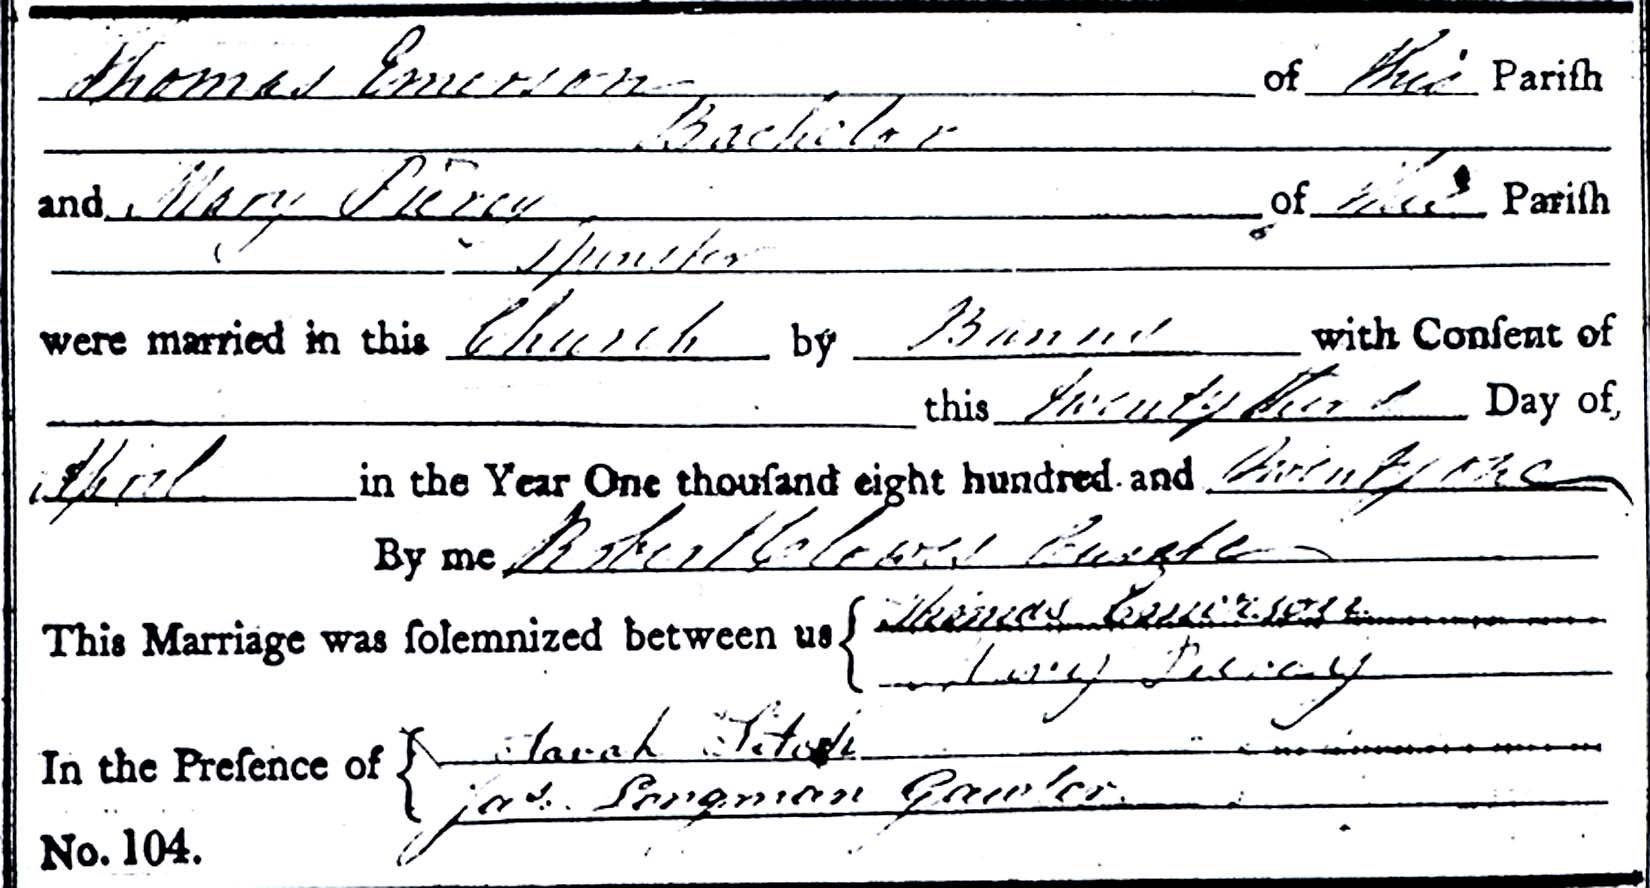 Thomas Emerson of this Pariſh
Bachelor
and Mary Piercy of this Pariſh
Spinster
were married in this Church by Banns with Conſent of
this twenty third Day of
April in the Year One thouſand eight hundred and twenty one
By me Robert Clowes Curate
This Marriage was ſolemnized between us { Thomas Emerson
Mary Piercy
In the Preſence of { Sarah
Jas. Longman Gawler.
No. 104.